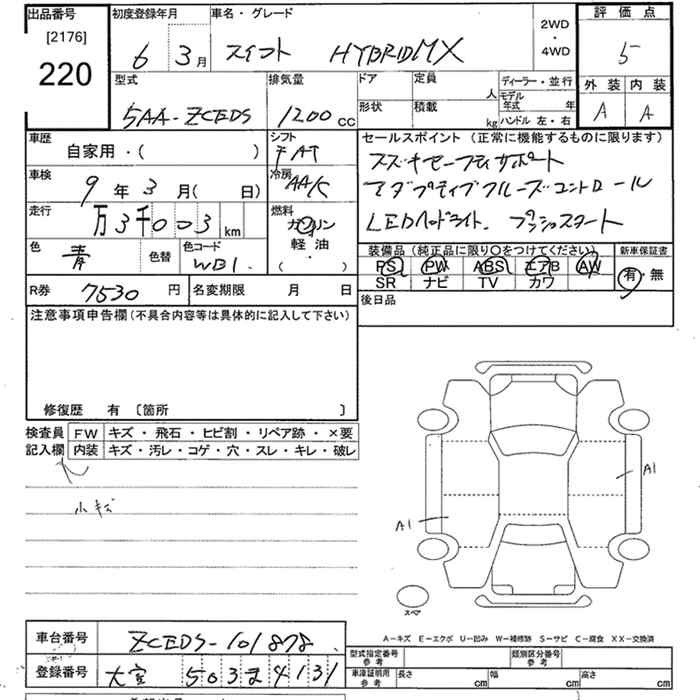 出品番号
[2176]
220
初度登録年月 6 3月
車名・グレード スイフト HYBRIDMX
2WD・4WD
評価点 5
外装 内装
A A
型式 5AA-ZCEDS
排気量 1200cc
ドア
形状
定員 人
積載 kg
ディーラー・並行
モデル年式 年
ハンドル 左・右
車歴 自家用・( )
シフト FAT
セールスポイント (正常に機能するものに限ります)
スズキセーフティサポート
アダプティブクルーズコントロール
LEDヘッドライト. プッシュスタート
車検 9年3月(日)
冷房 AA/C
走行 万3千003km
燃料 ガソリン
軽油・
( )
色 青 色替
色コード WB1.
装備品 (純正品に限り○をつけてください)
PS PW ABS エアB AW
SR ナビ TV カワ
新車保証書
有・無
R券 7530円
名変期限 月 日
後日品
注意事項申告欄(不具合内容等は具体的に記入して下さい)
修復歴 有 〔箇所 〕
検査員記入欄
FW キズ・飛石・ヒビ割・リペア跡・×要
内装 キズ・汚レ・コゲ・穴・スレ・キレ・破レ
小キズ
A1
A1
スペア
A-キズ E-エクボ U-凹み W-補修跡 S-サビ C-腐食 XX-交換済
車台番号 ZCEDS-101878
登録番号 大宮 503 ま 4131
型式指定番号 参考
類別区分番号 参考
車庫証明用 参考
長さ cm 幅 cm 高さ cm